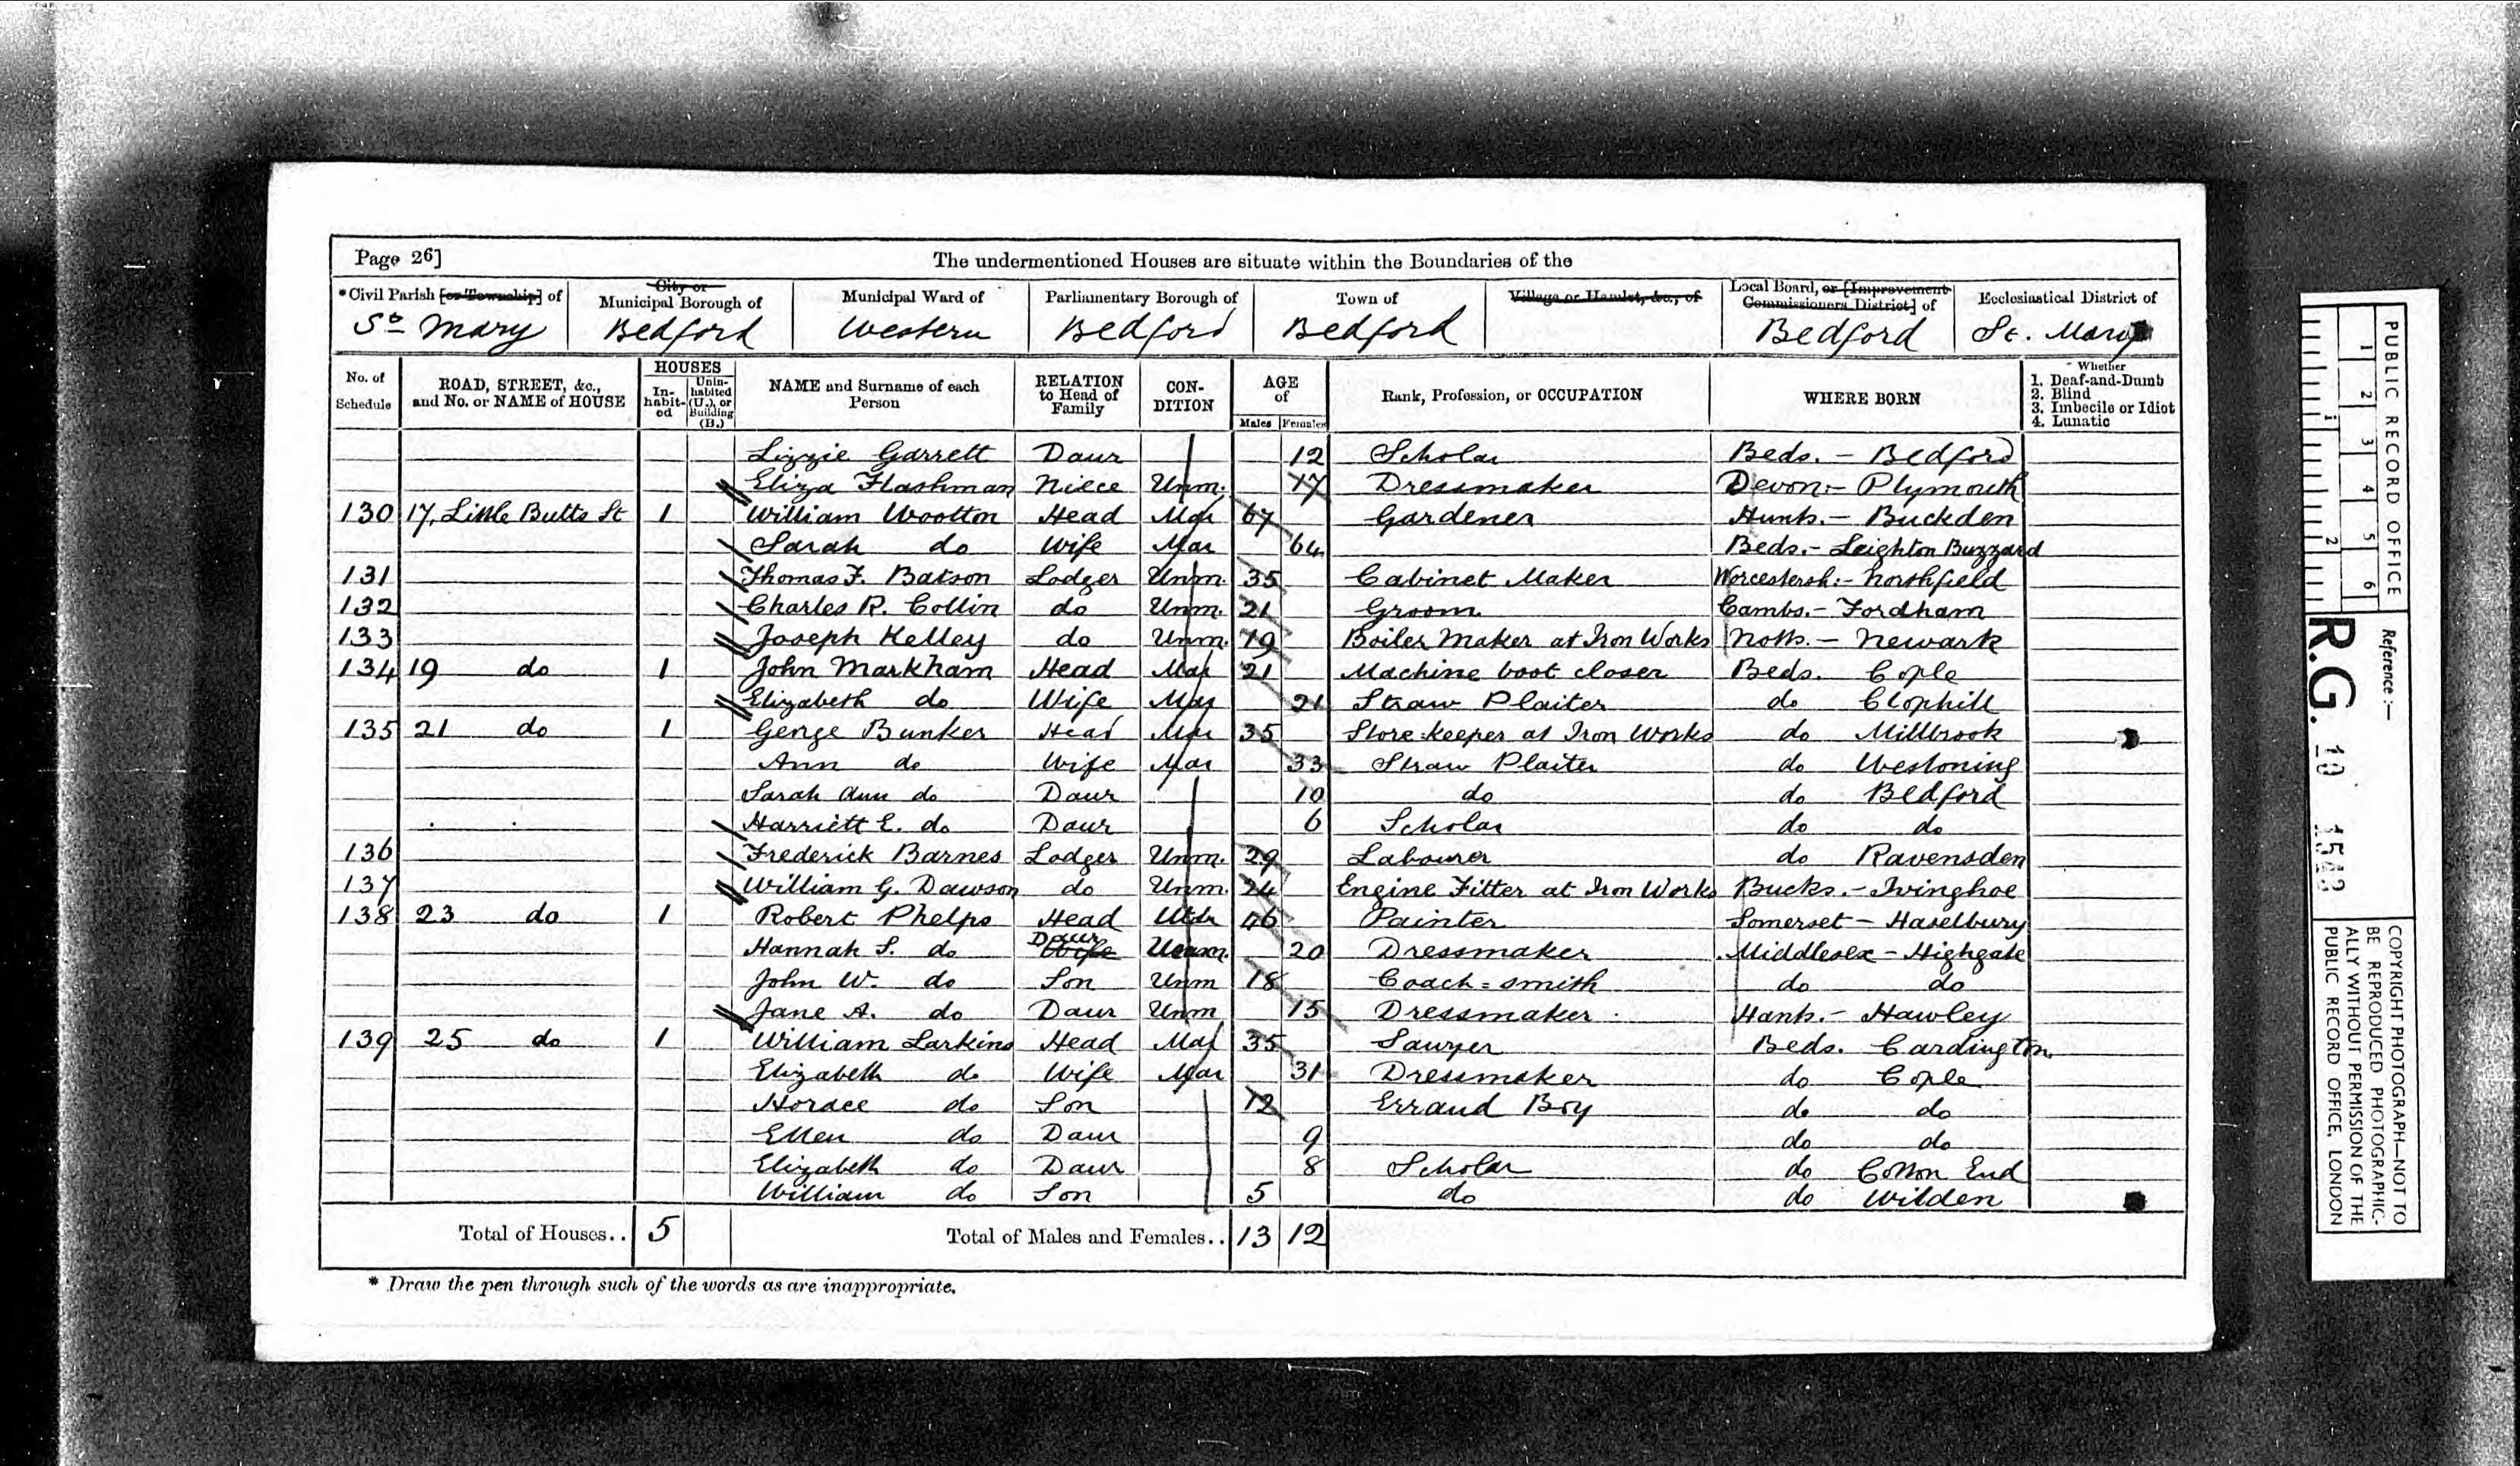 Page 26]
The undermentioned Houses are situate within the Boundaries of the
*Civil Parish [or Township] of
City or Municipal Borough of
Municipal Ward of
Parliamentary Borough of
Town of
Village or Hamlet, &c., of
Local Board, or [Improvement Commissioners District] of
Ecclesiastical District of
St Mary
Bedford
Western
Bedford
Bedford
Bedford
St. Mary
No. of Schedule
ROAD, STREET, &c., and No. or NAME of HOUSE
HOUSES
In-habit-ed
Unin-habited (U.), or Building (B.)
NAME and Surname of each Person
RELATION to Head of Family
CON-DITION
AGE of
Males Females
Rank, Profession, or OCCUPATION
WHERE BORN
Whether
1. Deaf-and-Dumb
2. Blind
3. Imbecile or Idiot
4. Lunatic
Lizzie Garrett Daur 12 Scholar Beds. - Bedford
Eliza Flashman Niece Unm. 17 Dressmaker Devon:- Plymouth
130 17, Little Butts St 1 William Wootton Head Mar 67 Gardener Hunts. - Buckden
Sarah do Wife Mar 64 Beds. - Leighton Buzzard
131 Thomas F. Batson Lodger Unm. 35 Cabinet Maker Worcestersh:- Northfield
132 Charles R. Collin do Unm. 21 Groom Cambs. - Fordham
133 Joseph Kelley do Unm. 19 Boiler Maker at Iron Works Notts. - Newark
134 19 do 1 John Markham Head Mar 21 Machine boot closer Beds. Cople
Elizabeth do Wife Mar 21 Straw Plaiter do Clophill
135 21 do 1 George Bunker Head Mar 35 Store-keeper at Iron Works do Millbrook
Ann do Wife Mar 33 Straw Plaiter do Westoning
Sarah Ann do Daur 10 do do Bedford
Harriett E. do Daur 6 Scholar do do
136 Frederick Barnes Lodger Unm. 29 Labourer do Ravensden
137 William G. Dawson do Unm. 24 Engine Fitter at Iron Works Bucks. - Ivinghoe
138 23 do 1 Robert Phelps Head Widr 46 Painter Somerset - Haselbury
Hannah S. do Daur Wife Unm. 20 Dressmaker Middlesex - Highgate
John W. do Son Unm 18 Coach=smith do do
Jane A. do Daur Unm 15 Dressmaker Hants. - Hawley
139 25 do 1 William Larkins Head Mar 35 Sawyer Beds. Cardington
Elizabeth do Wife Mar 31 Dressmaker do Cople
Horace do Son 12 Errand Boy do do
Ellen do Daur 9 do do
Elizabeth do Daur 8 Scholar do Cotton End
William do Son 5 do do Wilden
Total of Houses.. 5 Total of Males and Females.. 13 12
* Draw the pen through such of the words as are inappropriate.
PUBLIC RECORD OFFICE
1 2 3 4 5 6
1 2
Reference :-
R.G. 10 1543
COPYRIGHT PHOTOGRAPH—NOT TO
BE REPRODUCED PHOTOGRAPHIC-
ALLY WITHOUT PERMISSION OF THE
PUBLIC RECORD OFFICE, LONDON